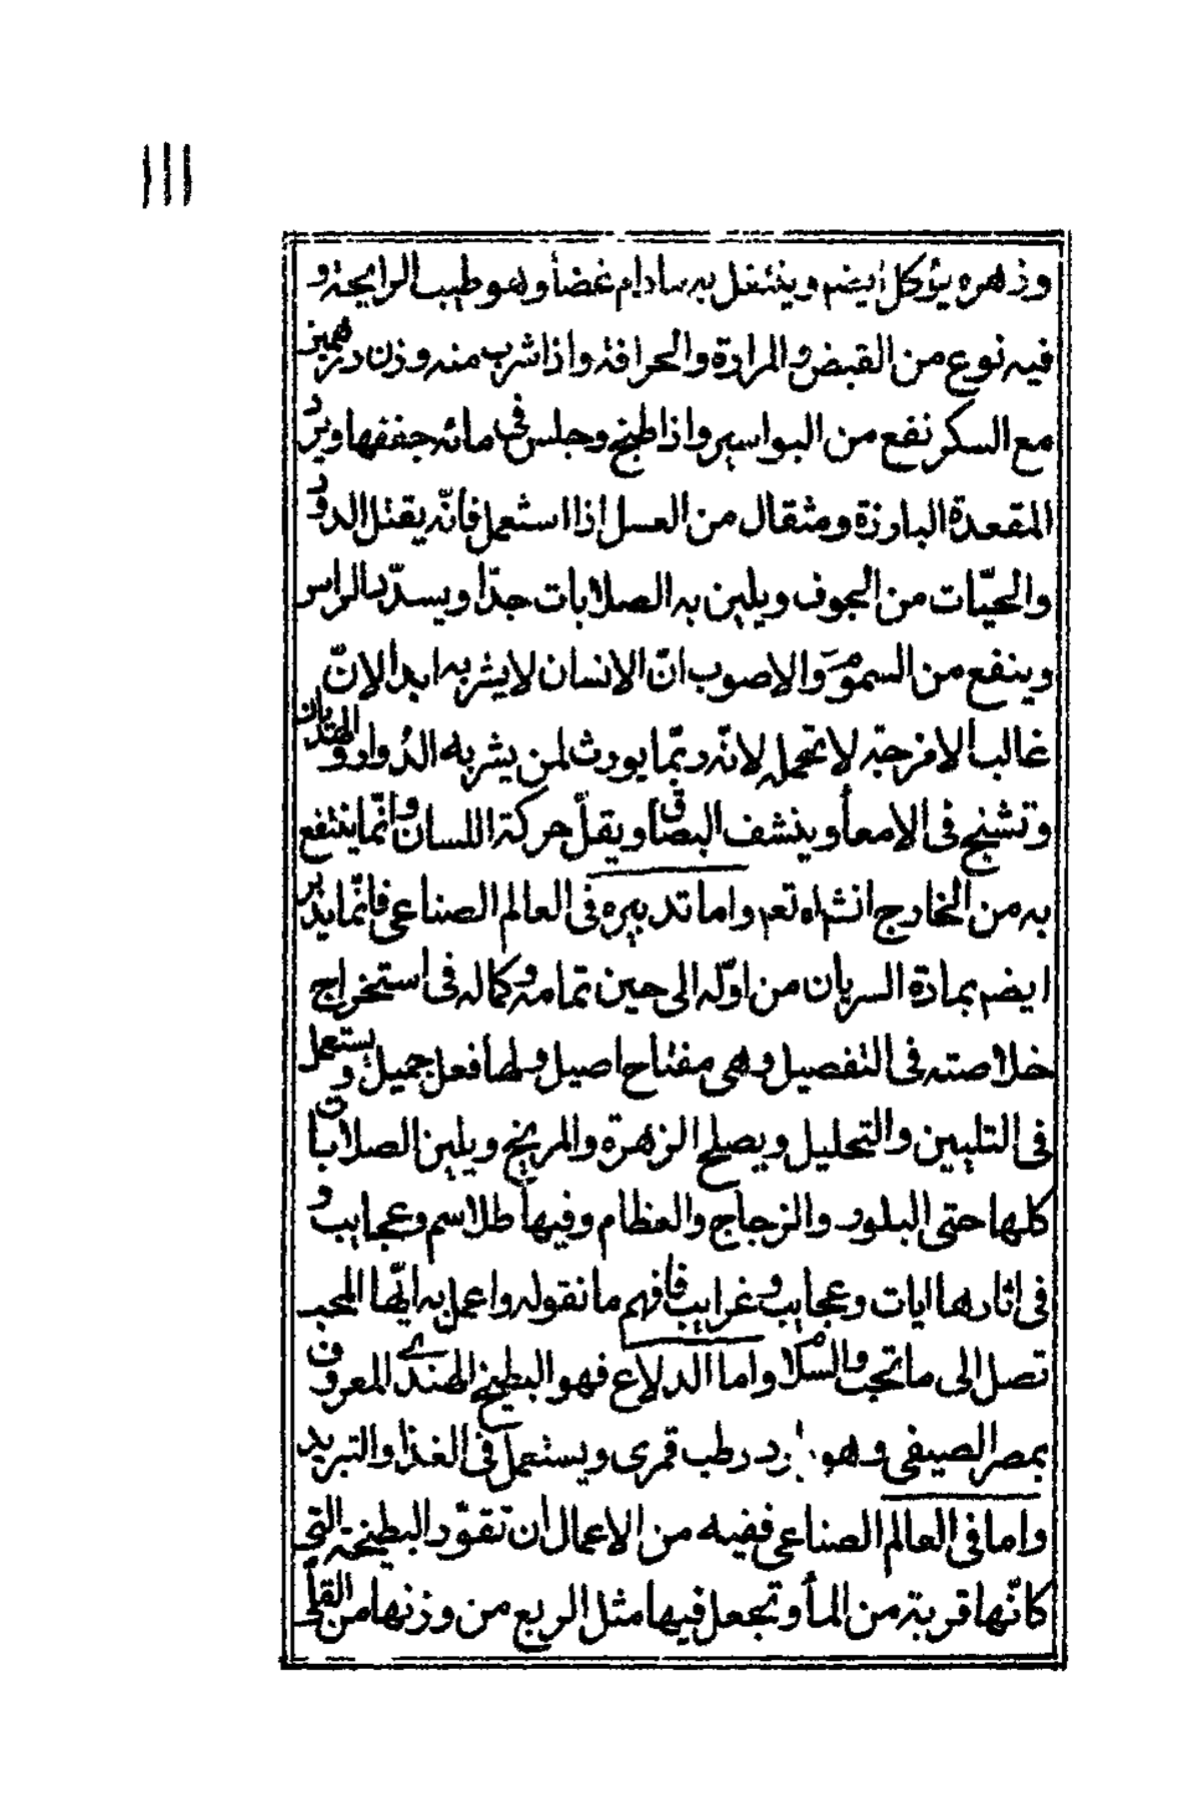 ١١١
وزهره يؤكل ايضم ويتنقل به مادام غضأ وهو طيب الرايحة و
فيه نوع من القبض والمرارة والحرافة واذا شرب منه وزن درهمين
مع السكر نفع من البواسير واذا طبخ وجلس فى مائه جففها ويرد
المقعدة البارزة ومثقال من العسل اذا استعمل فانّه يقتل الدود
والحيّات من الجوف ويلين به الصلابات جدّا ويسدّد الراس
وينفع من السموم والاصوب انّ الانسان لا يشربه ابدا لانّ
غالب الامزجة لا تحمله لانّه ربّما يورث لمن يشربه الدُوار والهذيان
وتشنج فى الامعأ وينشف البصاق ويقلّ حركة اللسان وانّما ينتفع
به من الخارج انشاه تعم واما تدبيره فى العالم الصناعى فانّما يدبر
ايضم بمادة السريان من اوّله الى حين تمامه وكماله فى استخراج
خلاصته فى التفصيل وهى مفتاح اصيل ولها فعل جميل ويستعمل
فى التليين والتحليل ويصلح الزهرة والمريخ ويلين الصلابات
كلها حتى البلور والزجاج والعظام وفيها طلاسم وعجايب و
فى اثارها ايات وعجايب وغرايب فافهم ما نقوله واعمل به ايّها المحب
تصل الى ما تحب والسلام واما الدلاع فهو البطيخ الهندى المعروف
بمصر الصيفى وهو بارد رطب قمرى ويستعمل فى الغذا والتبريد
واما فى العالم الصناعى ففيه من الاعمال ان تقوّر البطيخة التى
كانّها قربة من المأ وتجعل فيها مثل الربع من وزنها من القلى